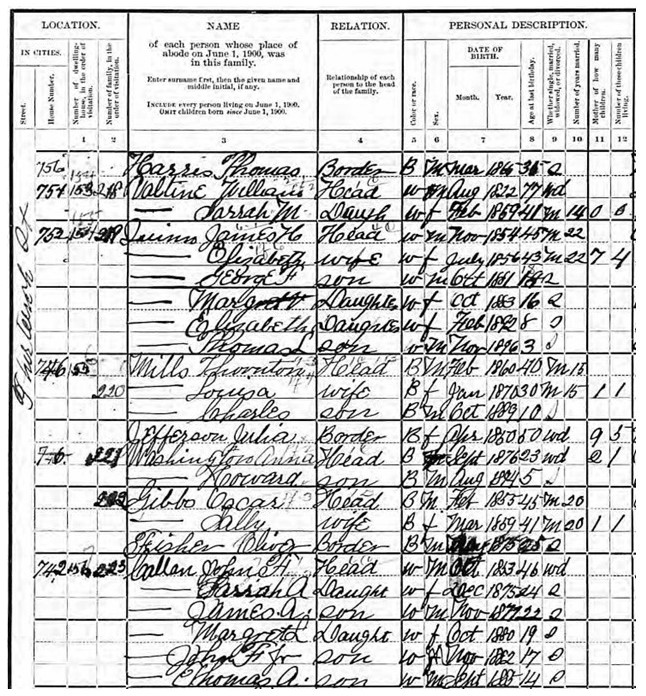 LOCATION. NAME RELATION. PERSONAL DESCRIPTION.
IN CITIES.
Street.
House Number.
Number of dwelling-house, in the order of visitation.
Number of family, in the order of visitation.
of each person whose place of abode on June 1, 1900, was in this family.
Enter surname first, then the given name and middle initial, if any.
INCLUDE every person living on June 1, 1900.
OMIT children born since June 1, 1900.
Relationship of each person to the head of the family.
Color or race.
Sex.
DATE OF BIRTH.
Month. Year.
Age at last birthday.
Whether single, married, widowed, or divorced.
Number of years married.
Mother of how many children.
Number of these children living.
1 2 3 4 5 6 7 8 9 10 11 12
756 Harris Thomas Border B M Mar 1865 35 S
754 153 218 William Head W M Aug 1822 77 wd
— Sarrah M. Daugh W f Feb 1859 41 M 14 0 0
752 154 219 Quinn James H Head W M Nov 1854 45 M 22
— Elizabeth wife W f July 1856 43 M 22 7 4
— George F son W M Oct 1881 18 S
— Margret Daughter W f Oct 1883 16 S
— Elizabeth Daughter W f Feb 1892 8 S
— Thomas L son W M Nov 1896 3 S
746 155 Mills Thornton Head B M Feb 1860 40 M 15
220 — Louisa wife B f Jan 1870 30 M 15 1 1
— Charles son B M Oct 1889 10 S
Jefferson Julia Border B f Apr 1850 50 wd 9 5
221 Washington Anna Head B Sept 1876 23 wd 2 1
— Howard son B M Aug 1894 5 S
222 Gibbs Oscar Head B M Feb 1855 45 M 20
— Sally wife B f Mar 1859 41 M 20 1 1
Oliver Border B M 1875 25 S
742 156 223 Callan John F Head W M Oct 1853 46 wd
— Sarrah A Daught W f Dec 1875 24 S
— James A. son W M Nov 1877 22 S
— Margret L Daught W f Oct 1880 19 S
— John F Jr son W M Nov 1882 17 S
— Thomas A. son W M Sept 1885 14 S